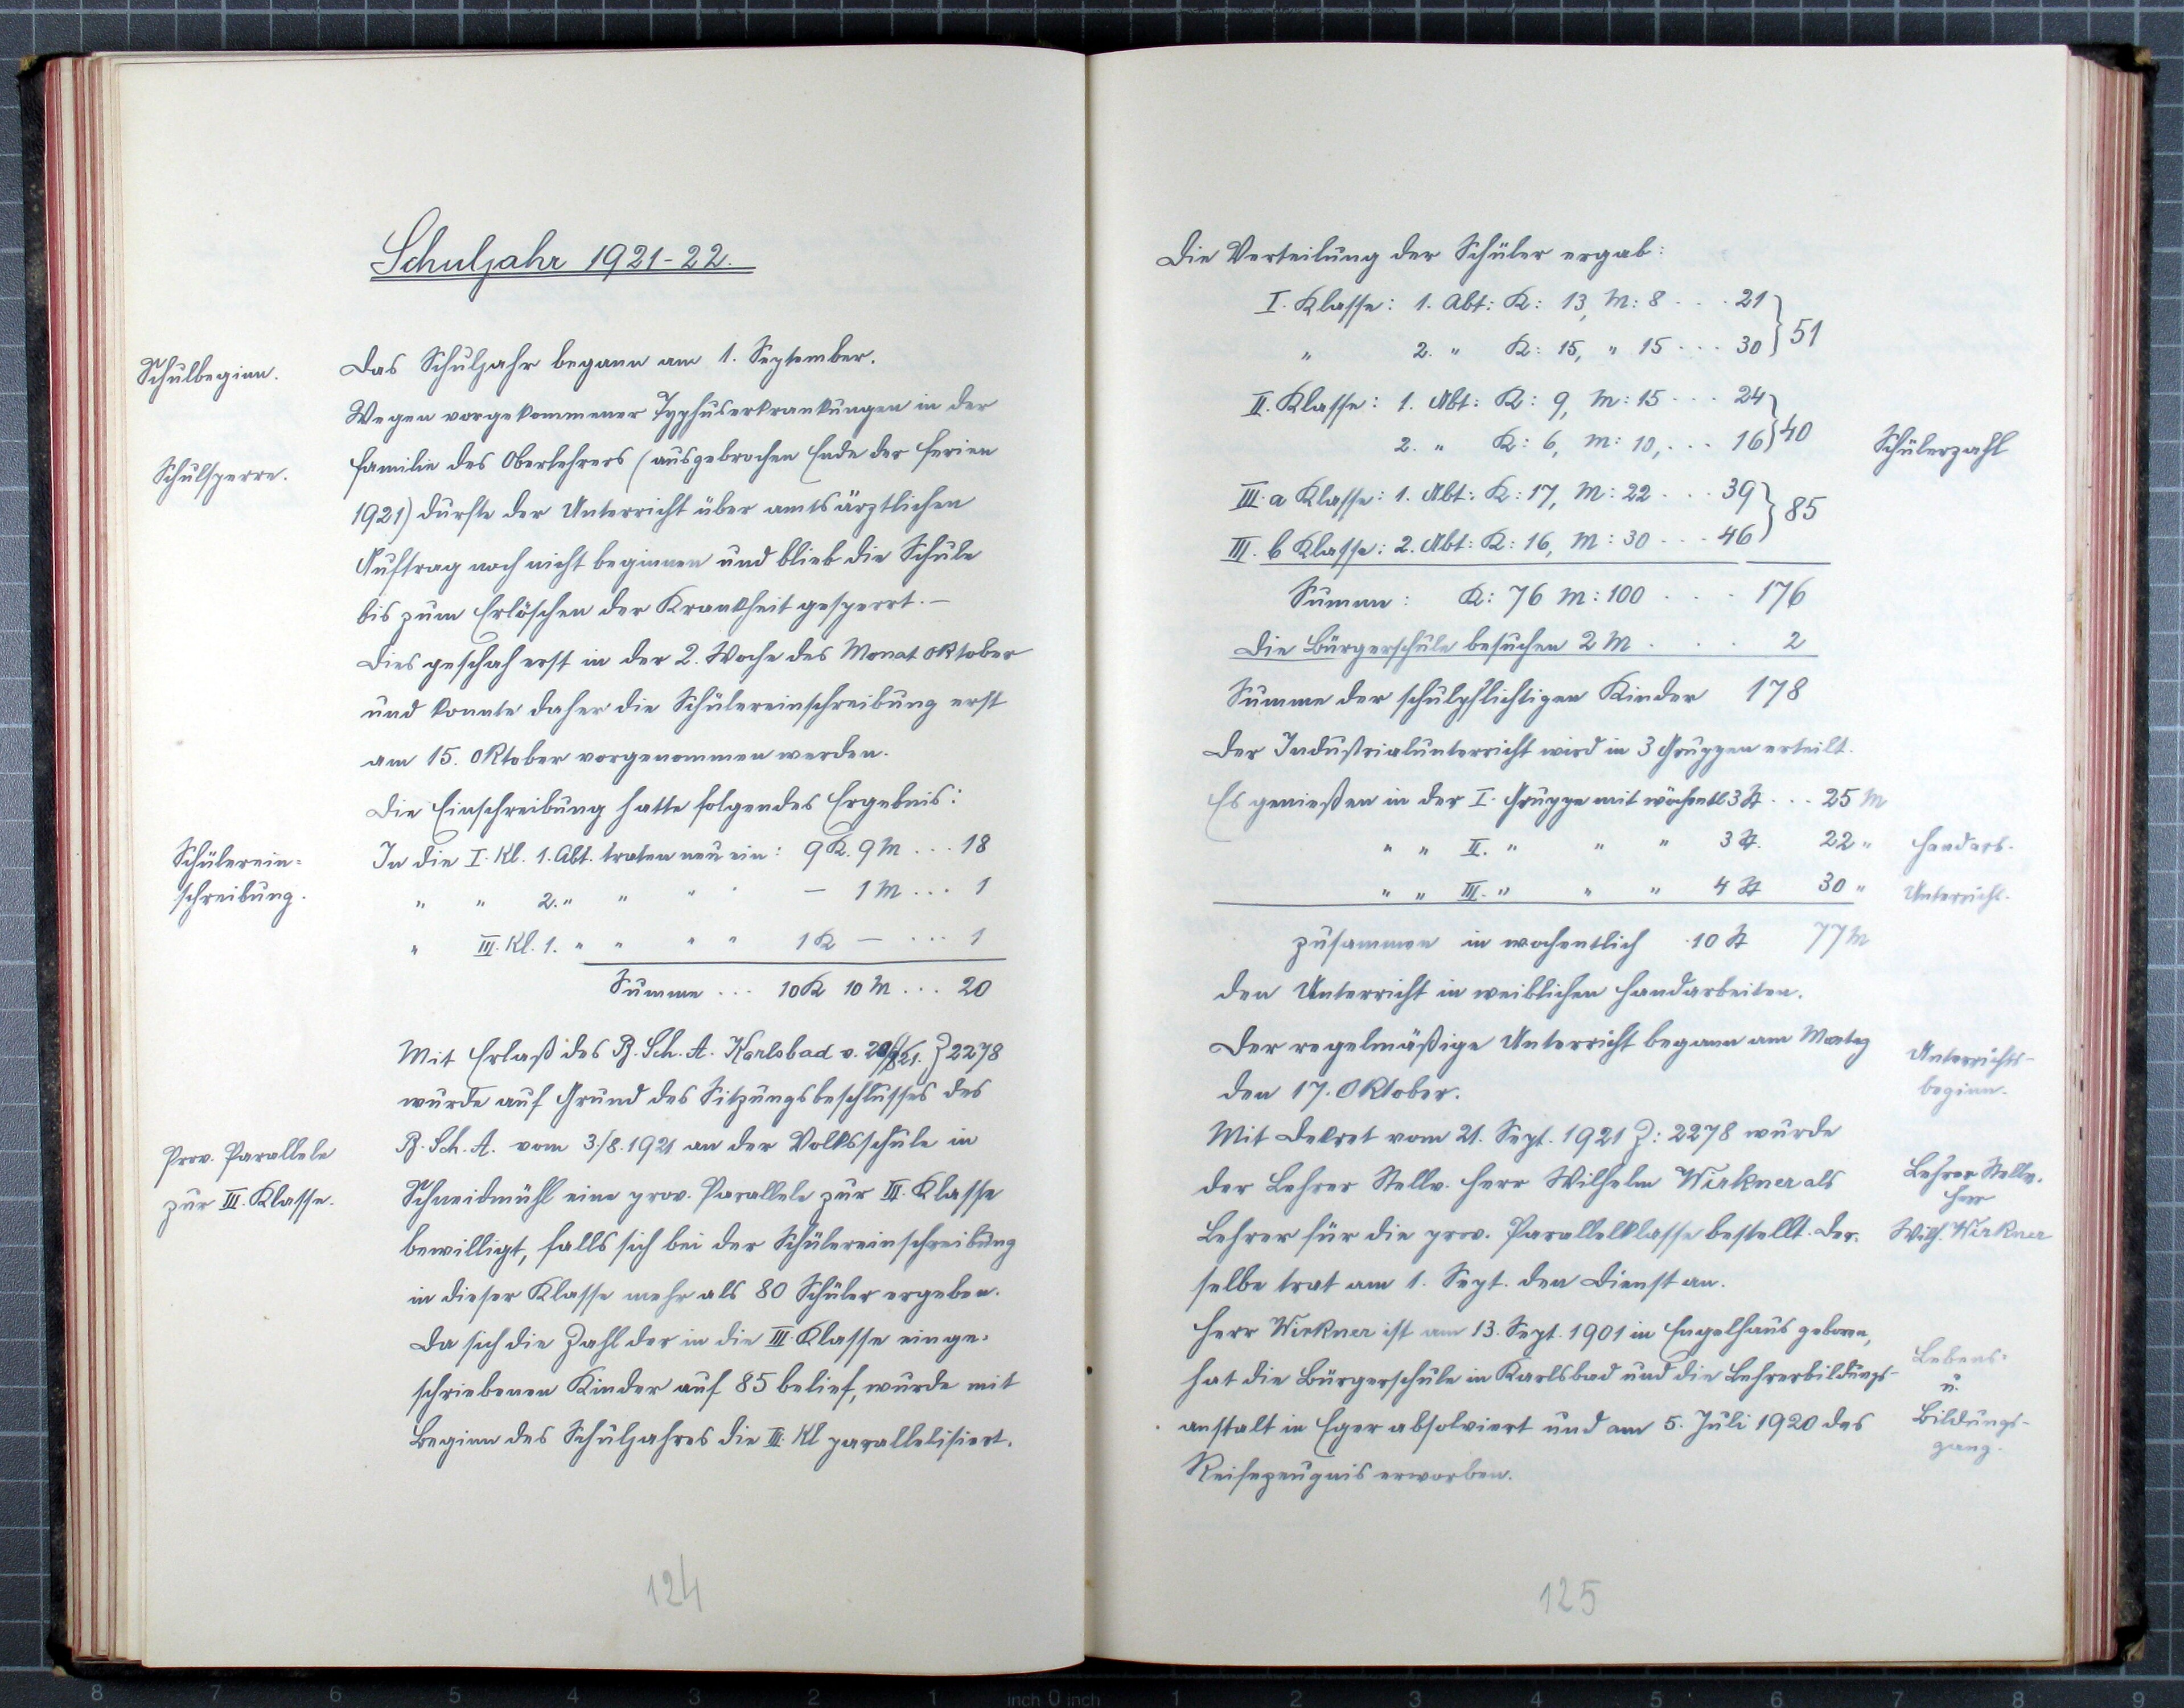 Schuljahr 1921-22.
Schulbeginn.
Das Schuljahr begann am 1. September.
Wegen vorgekommener Typhuserkrankungen in der
Schulsperre.
Familie des Oberlehrers (ausgebrochen Ende der Ferien
1921) durfte der Unterricht über amtsärztlichen
Auftrag noch nicht beginnen und blieb die Schule
bis zum Erlöschen der Krankheit gesperrt.-
Dies geschah erst in der 2. Woche des Monat Oktober
und konnte daher die Schülereinschreibung erst
am 15. Oktober vorgenommen werden.
Die Einschreibung hatte folgendes Ergebnis:
Schülerein=
schreibung.
In die I. Kl. 1. Abt. traten neu ein: 9 K. 9 M ... 18
" " 2. " " " " — 1 M ... 1
" III. Kl. 1. " " " " 1 K — ... 1
Summe ... 10 K 10 M ... 20
Mit Erlaß des B. Sch. A. Karlsbad v. Z 2278
wurde auf Grund des Sitzungsbeschlusses des
Prov. Parallele
zur III. Klasse.
B. Sch. A. vom 3./8. 1921 an der Volksschule in
Schneidmühl eine prov. Parallele zur III. Klasse
bewilligt, falls sich bei der Schülereinschreibung
in dieser Klasse mehr als 80 Schüler ergeben.
Da sich die Zahl der in die III. Klasse einge-
schriebenen Kinder auf 85 belief, wurde mit
Beginn des Schuljahres die III. Kl parallelisiert.
124
Die Verteilung der Schüler ergab:
I. Klasse: 1. Abt: K: 13, M: 8 ... 21
" 2. " K: 15, " 15 ... 30 } 51
II. Klasse: 1. Abt: K: 9, M: 15 ... 24
2. " K: 6, M: 10, ... 16 } 40
Schülerzahl
III. a Klasse: 1. Abt: K: 17, M: 22 ... 39
III. b Klasse: 2. Abt: K: 16, M: 30 ... 46 } 85
Summe: K: 76 M: 100 ... 176
Die Bürgerschule besuchen 2 M ... 2
Summe der schulpflichtigen Kinder 178
Der Industrialunterricht wird in 3 Gruppen erteilt.
Es genießen in der I. Gruppe mit wöchentl 3 St ... 25 M
" " II. " " " 3 St. 22 "
Handarb.
" " III. " " " 4 St 30 "
Unterricht.
zusammen in wochentlich 10 St 77 M
den Unterricht in weiblichen Handarbeiten.
Der regelmäßige Unterricht begann am
Unterrichts-
beginn.
den 17. Oktober.
Mit Dekret vom 21. Sept. 1921 Z: 2278 wurde
der Lehrer Stellv. Herr Wilhelm Wirkner als
Lehrer Stellv.
Herr
Wilh. Wirkner
Lehrer für die prov. Parallelklasse bestellt. Der-
selbe trat am 1. Sept. den Dienst an.
Herr Wirkner ist am 13. Sept. 1901 in Engelhaus geboren,
Lebens=
u.
Bildungs-
gang.
hat die Bürgerschule in Karlsbad und die Lehrerbildungs-
anstalt in Eger absolviert und am 5. Juli 1920 das
Reifezeugnis erworben.
125